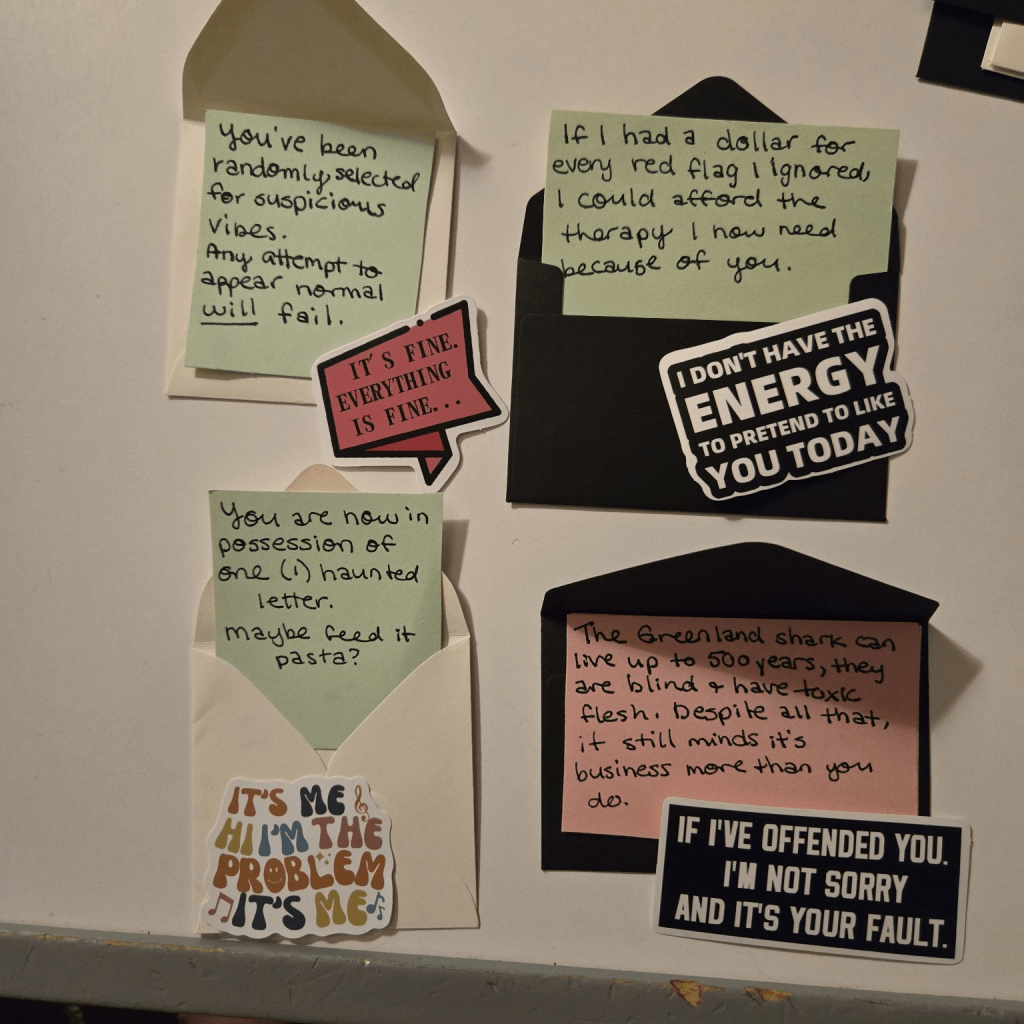 You've been
randomly selected
for suspicious
vibes.
Any attempt to
appear normal
will fail.
IT'S FINE.
EVERYTHING
IS FINE...
If I had a dollar for
every red flag I ignored,
I could afford the
therapy I now need
because of you.
I DON'T HAVE THE
ENERGY
TO PRETEND TO LIKE
YOU TODAY
You are now in
possession of
one (1) haunted
letter.
maybe feed it
pasta?
IT'S ME
HI I'M THE
PROBLEM
IT'S ME
The Greenland shark can
live up to 500 years, they
are blind & have toxic
flesh. Despite all that,
it still minds it's
business more than you
do.
IF I'VE OFFENDED YOU.
I'M NOT SORRY
AND IT'S YOUR FAULT.